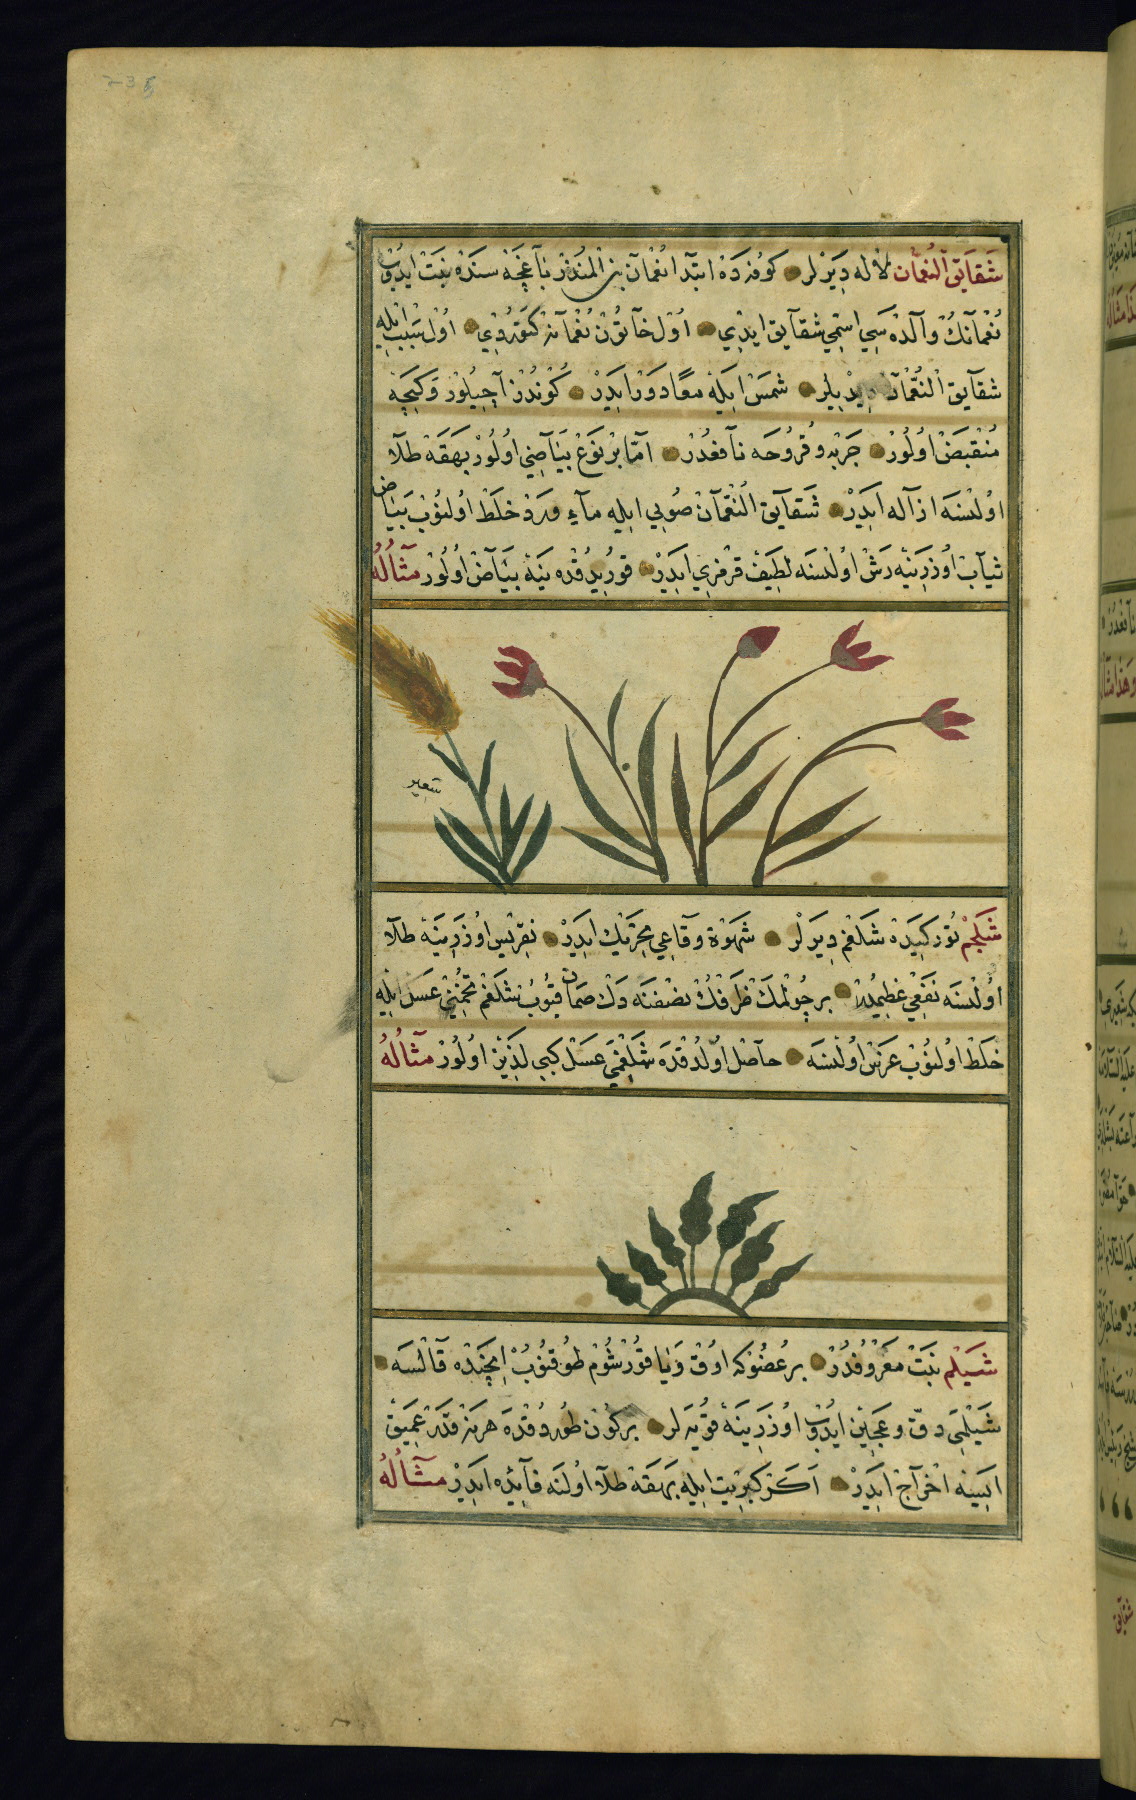 شقايق النعمان لاله ديرلر كوفه ده ابتدا نعمان بن المنذر باغچه سنده نبت ايدوب
نعمانك والده سي اسمي شقايق ايدي اول خاتون نعمانه كتوردي اول سبب ايله
شقايق النعمان ديديلر شمس ايله معا دور ايدر كوندز آچيلور وكيجه
منقبض اولور جربه وقروحه نافعدر اما بر نوع بياضي اولور بهقه طلا
اولنسه ازاله ايدر شقايق النعمان صويي ايله ماء ورد خلط اولنوب بياض
ثياب اوزرينه رش اولنسه لطيف قرمزي ايدر قوريدقده ينه بياض اولور مثاله
شعير
شلجم توركيده شلغم ديرلر شهوة وقاعي تحريك ايدر نقريس اوزرينه طلا
اولنسه نفعي عظيمدر بر چولمك ظرفك نصفنه دك صمان قيوب شلغم تخمني عسل ايله
خلط اولنوب غرس اولنسه حاصل اولدقده شلغمي عسل كبي لذيذ اولور مثاله
شيلم نبت معروفدر بر عضوكه اوق ويا قورشوم طوقنوب ايچنده قالسه
شيلمي دق وعجين ايدوب اوزرينه قويه لر بر كون طوردقده هر نه قدر عميق
ايسه اخراج ايدر اكر كبريت ايله بهقه طلا اولنه فائده ايدر مثاله